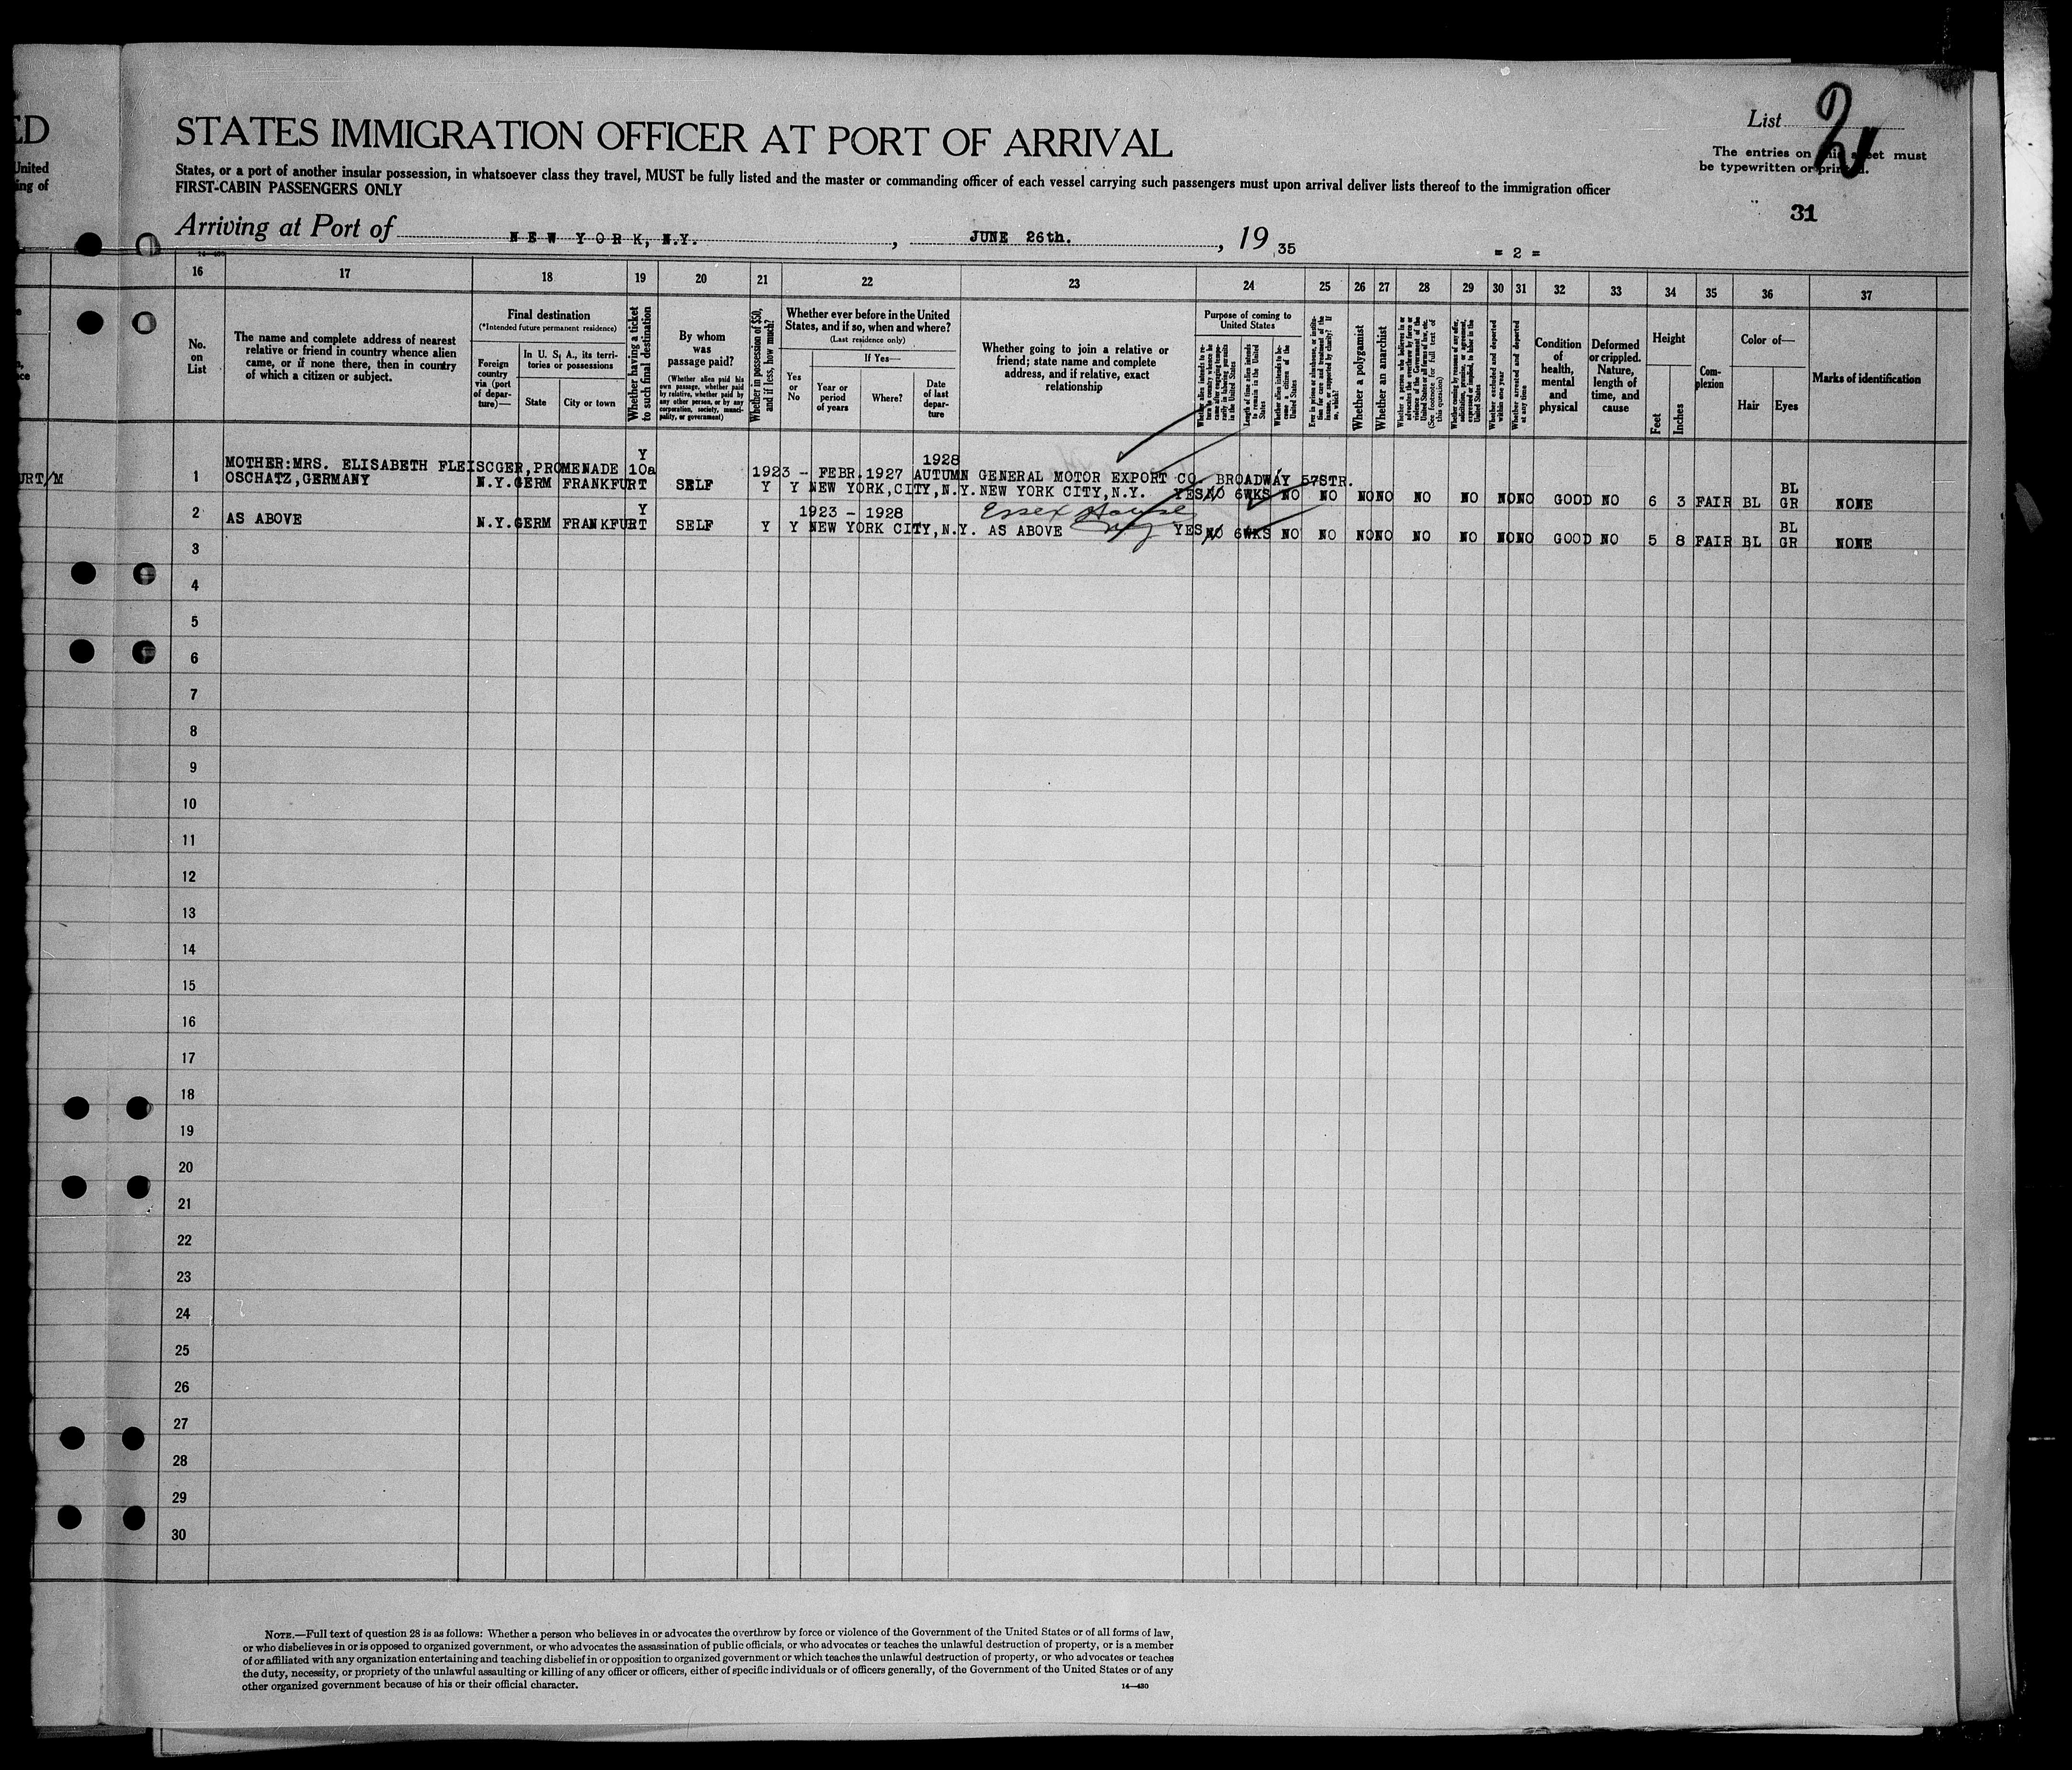 ED
United
ing of
STATES IMMIGRATION OFFICER AT PORT OF ARRIVAL
List 2
The entries on this sheet must
be typewritten or printed.
States, or a port of another insular possession, in whatsoever class they travel, MUST be fully listed and the master or commanding officer of each vessel carrying such passengers must upon arrival deliver lists thereof to the immigration officer
FIRST-CABIN PASSENGERS ONLY
31
Arriving at Port of NEW YORK, N.Y. , JUNE 26th. , 19 35
= 2 =
16 17 18 19 20 21 22 23 24 25 26 27 28 29 30 31 32 33 34 35 36 37
No. on List
The name and complete address of nearest relative or friend in country whence alien came, or if none there, then in country of which a citizen or subject.
Final destination
(*Intended future permanent residence)
Foreign country via (port of departure)—
In U. S. A., its territories or possessions
State
City or town
Whether having a ticket to such final destination
By whom was passage paid?
(Whether alien paid his own passage, whether paid by relative, whether paid by any other person, or by any corporation, society, municipality, or government)
Whether in possession of $50, and if less, how much?
Whether ever before in the United States, and if so, when and where?
(Last residence only)
Yes or No
If Yes—
Year or period of years
Where?
Date of last departure
Whether going to join a relative or friend; state name and complete address, and if relative, exact relationship
Purpose of coming to United States
Whether alien intends to return to country whence he came after engaging temporarily in laboring pursuits in the United States
Length of time alien intends to remain in the United States
Whether alien intends to become a citizen of the United States
Ever in prison or almshouse, or institution for care and treatment of the insane, or supported by charity? If so, which?
Whether a polygamist
Whether an anarchist
Whether a person who believes in or advocates the overthrow by force or violence of the Government of the United States or all forms of law, etc. (See footnote for full text of this question)
Whether coming by reasons of any offer, solicitation, promise, or agreement, expressed or implied, to labor in the United States
Whether excluded and deported within one year
Whether arrested and deported at any time
Condition of health, mental and physical
Deformed or crippled. Nature, length of time, and cause
Height
Feet
Inches
Complexion
Color of—
Hair
Eyes
Marks of identification
URT/M
1 MOTHER:MRS. ELISABETH FLEISCGER,PROMENADE 10a
OSCHATZ,GERMANY N.Y. GERM FRANKFURT Y SELF Y Y 1923 - FEBR.1927 AUTUMN 1928 NEW YORK,CITY,N.Y. GENERAL MOTOR EXPORT CO. BROADWAY 57STR.
NEW YORK CITY,N.Y. YES NO 6WKS NO NO NO NO NO NO NO NO GOOD NO 6 3 FAIR BL BL GR NONE
Essex House
2 AS ABOVE N.Y. GERM FRANKFURT Y SELF Y Y 1923 - 1928 NEW YORK CITY,N.Y. AS ABOVE YES NO 6WKS NO NO NO NO NO NO NO NO GOOD NO 5 8 FAIR BL BL GR NONE
3
4
5
6
7
8
9
10
11
12
13
14
15
16
17
18
19
20
21
22
23
24
25
26
27
28
29
30
NOTE.—Full text of question 28 is as follows: Whether a person who believes in or advocates the overthrow by force or violence of the Government of the United States or of all forms of law,
or who disbelieves in or is opposed to organized government, or who advocates the assassination of public officials, or who advocates or teaches the unlawful destruction of property, or is a member
of or affiliated with any organization entertaining and teaching disbelief in or opposition to organized government or which teaches the unlawful destruction of property, or who advocates or teaches
the duty, necessity, or propriety of the unlawful assaulting or killing of any officer or officers, either of specific individuals or of officers generally, of the Government of the United States or of any
other organized government because of his or their official character.
14—430